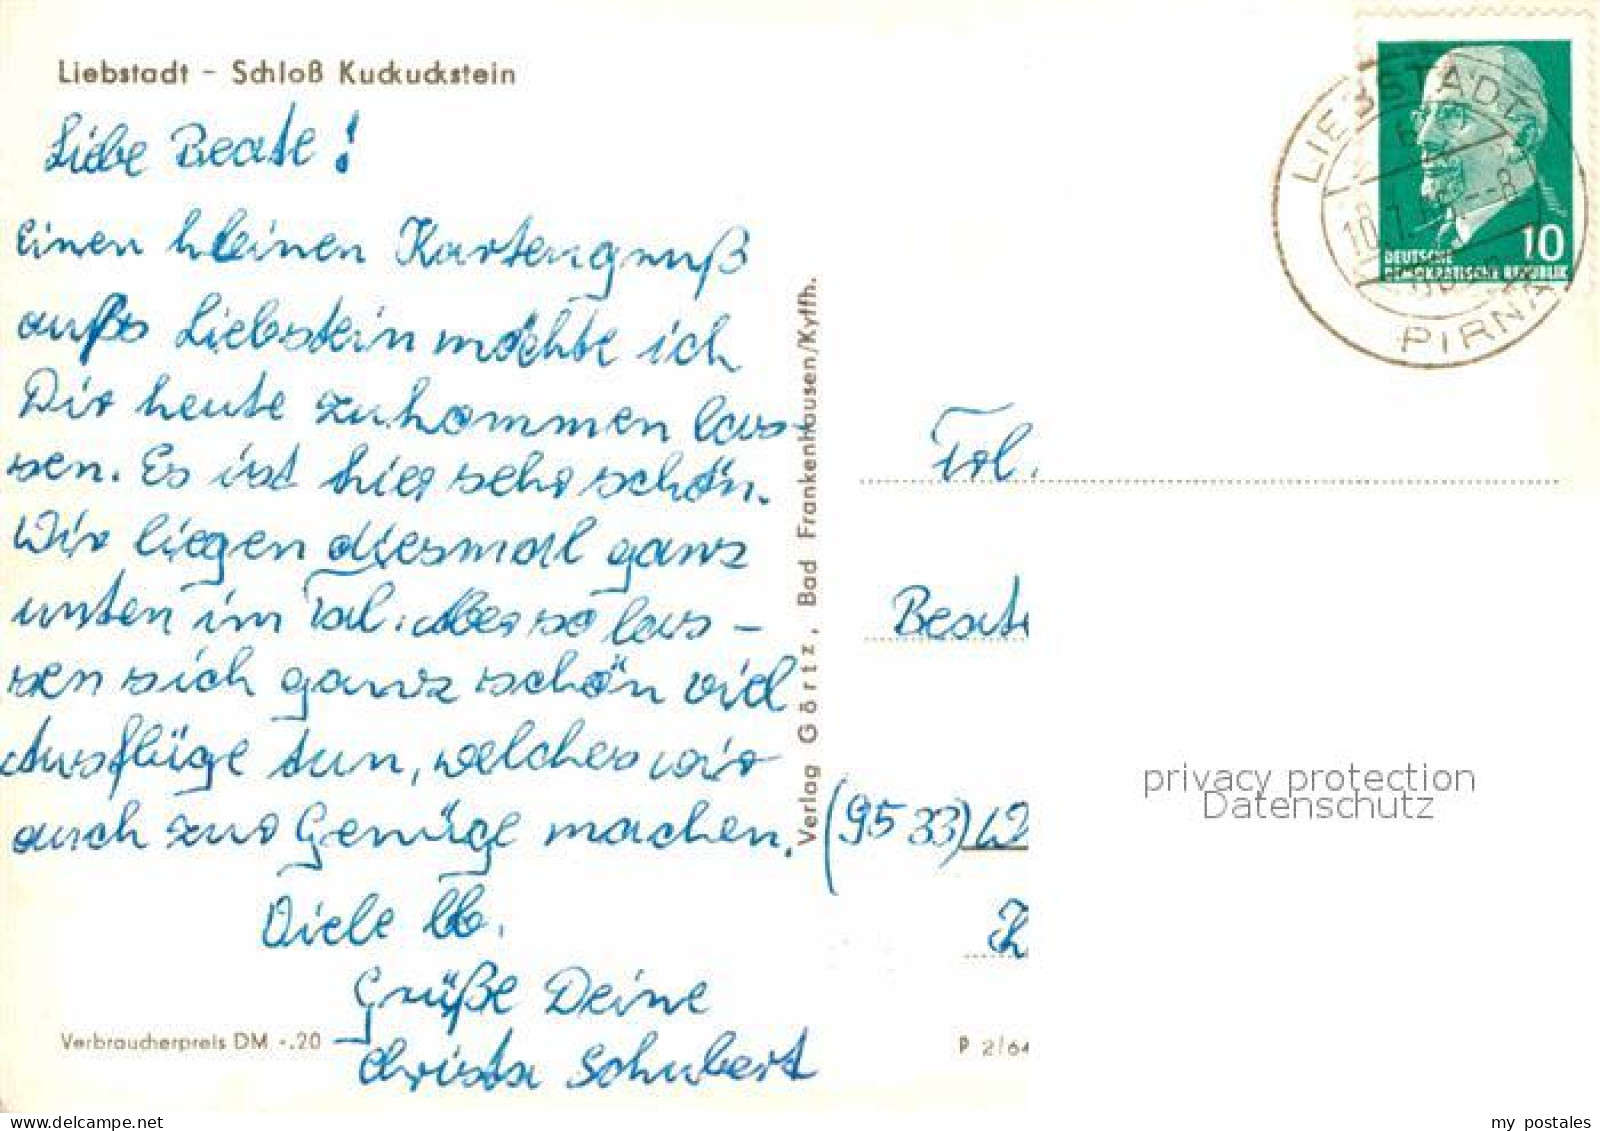 Liebstadt - Schloß Kuckuckstein
Liebe Beate!
Einen kleinen Kartengruß
aus Liebstein möchte ich
Dir heute zukommen las-
sen. Es ist hier sehr schön.
Wir liegen diesmal ganz
unten im Tal. Aber so las-
sen sich ganz schön viel
Ausflüge tun, welches wir
auch zur Genüge machen.
Viele lb.
Grüße Deine
Christa Schubert
Verbraucherpreis DM -.20
Verlag Görtz, Bad Frankenhausen/Kyffh.
LIEBSTADT
PIRNA
10
DEUTSCHE
DEMOKRATISCHE REPUBLIK
Frl.
Beate
(95 33)
P 2/64
privacy protection
Datenschutz
my postales